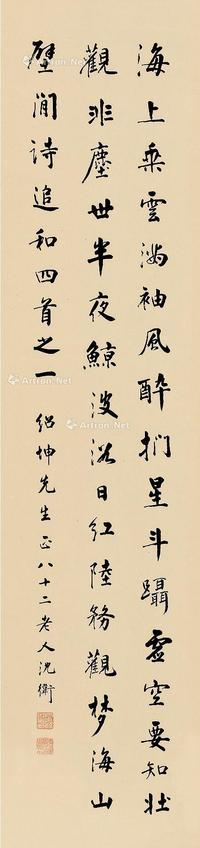 海上乘雲滿袖風醉捫星斗躡虛空要知壯
觀非塵世半夜鯨波浴日紅陸務觀梦海山
壁間詩追和四首之一 紹坤先生正八十二老人沈衛
Artron.Net